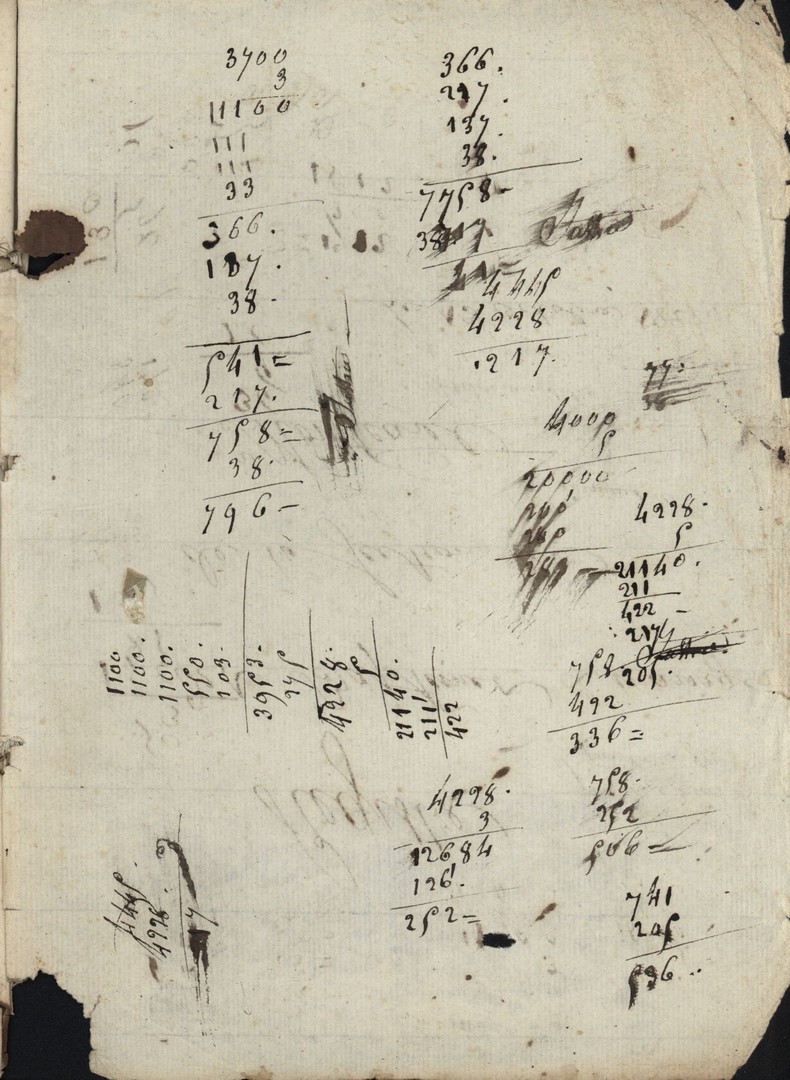 3700
3
11100
111
111
33
366.
137.
38.
541=
217.
758=
38.
796-
366.
217.
137.
38.
7758-
38
4445
4228
.217.
77=
4000
5
20000
200
4228.
5
21140.
211
422-
217
205.
758.
492
336=
1100
1100.
1100.
550.
103.
3953.
275
4228.
5
21140.
211
422
4228.
3
12684
126.
252=
758.
252
506=
741
205
536..
4445.
4228.
7